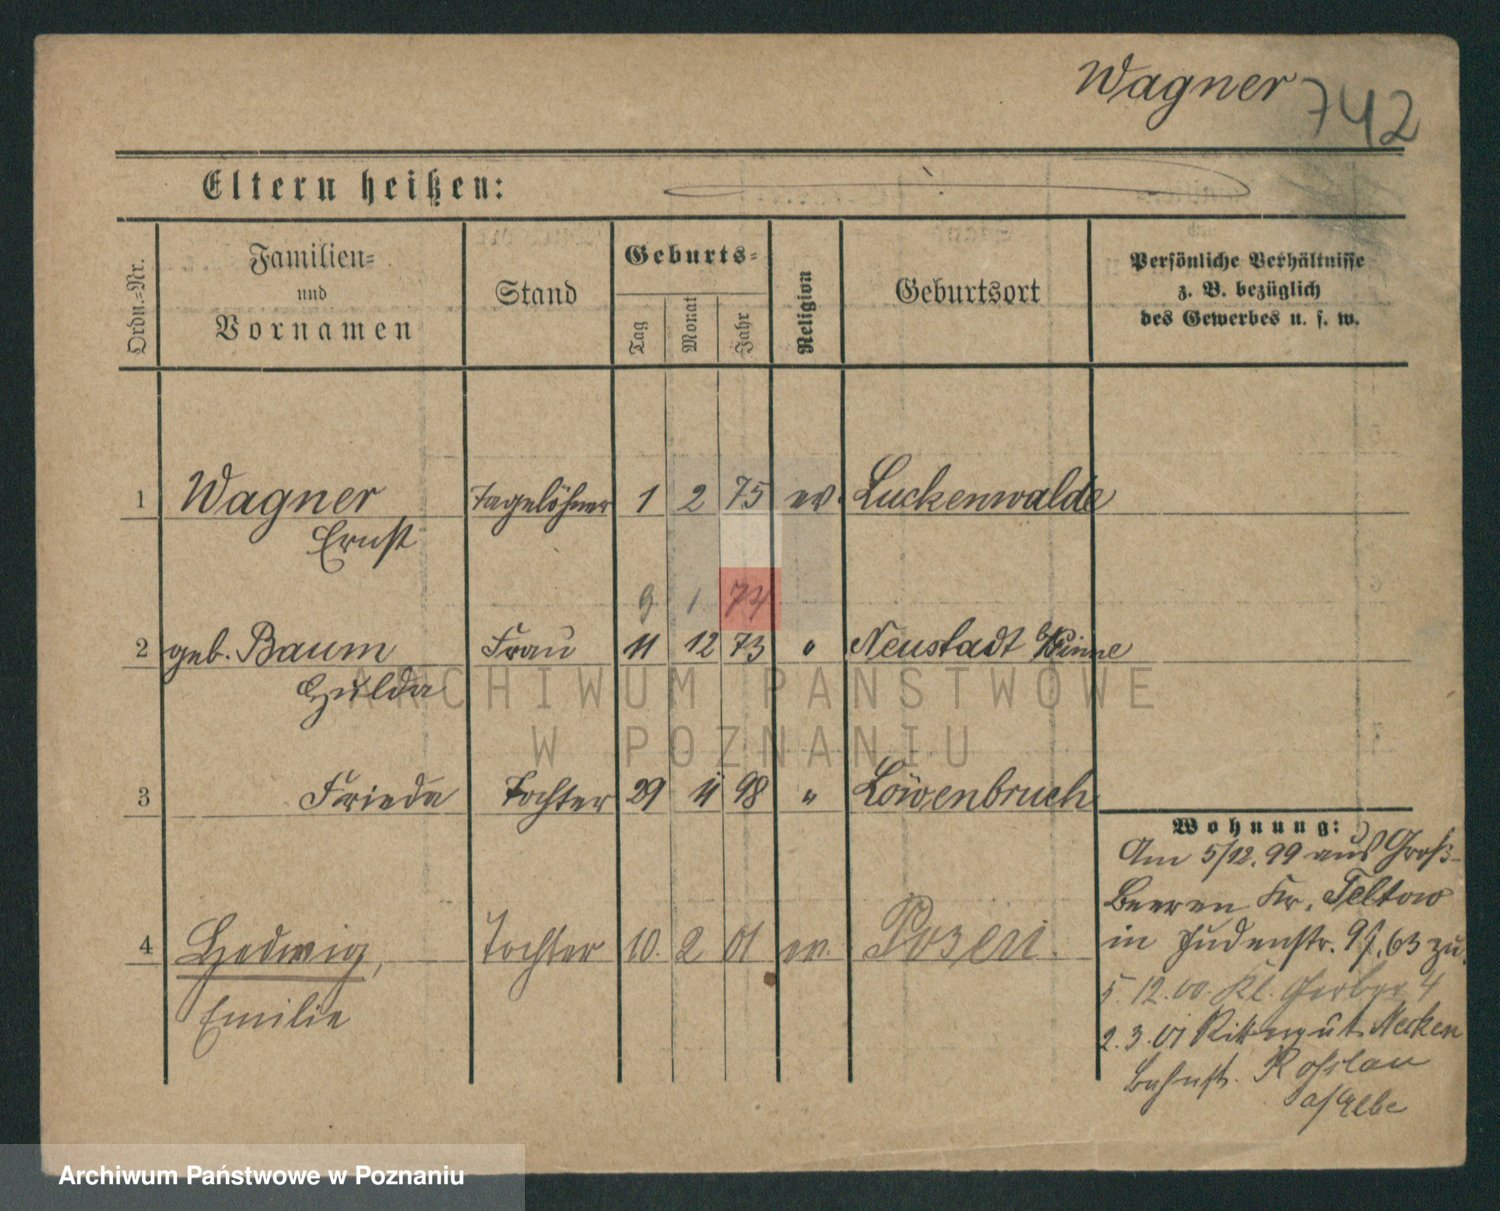 Wagner 742
Eltern heißen:
Ordn.-Nr.
Familien-
und
Vornamen
Stand
Geburts-
Tag
Monat
Jahr
Religion
Geburtsort
Persönliche Verhältnisse
z. B. bezüglich
des Gewerbes u. s. w.
1 Wagner Tagelöhner 1 2 75 ev. Luckenwalde
Ernst
9 1 74
2 geb. Baum Frau 11 12 73 " Neustadt b/Pinne
Hulda
ARCHIWUM PAŃSTWOWE
W POZNANIU
3 Frieda Tochter 29 11 98 " Löwenbruch
4 Hedwig, Tochter 10. 2 01 ev. Posen.
Emilie
Wohnung:
Am 5/12.99 aus Groß-
Beeren Kr. Teltow
in Judenstr. 9/. 63 zu.
5.12.00. Kl. Gerber 4
2.3.01 Rittergut
Bahnst. Rosslau
a/Elbe
Archiwum Państwowe w Poznaniu